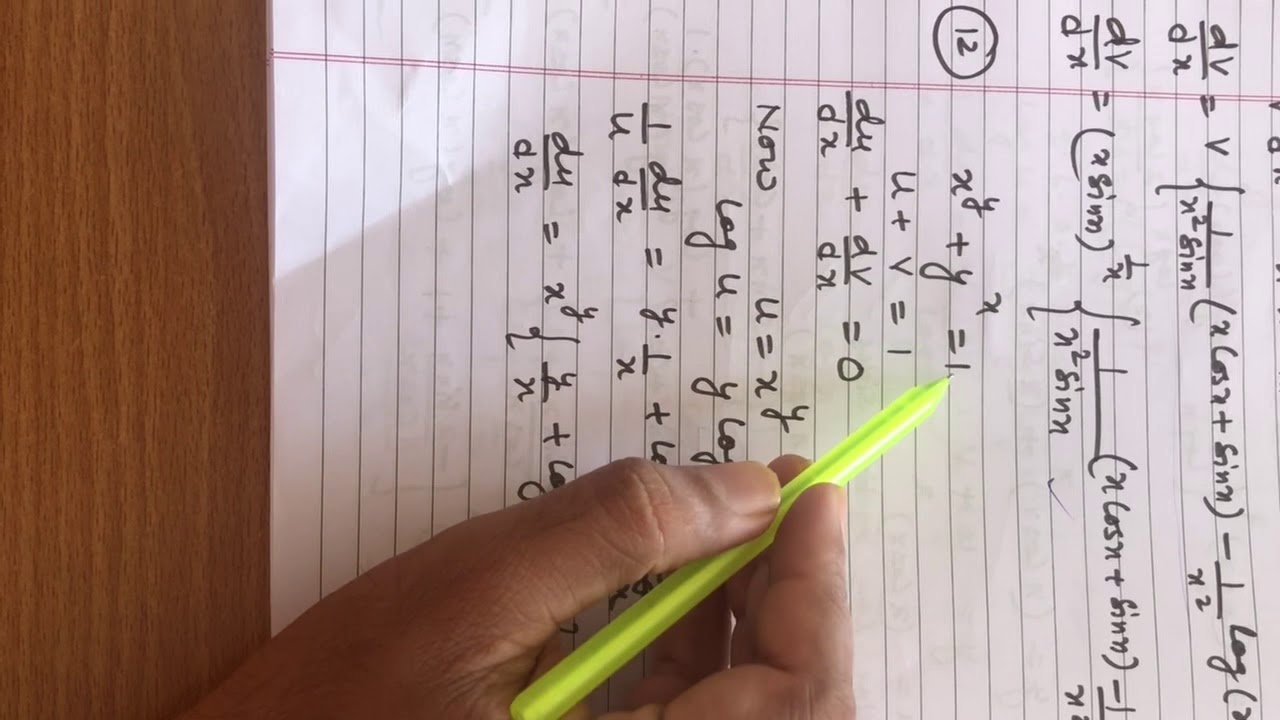 dv/dx = v { 1/x² sinx (x cosx + sinx) - 1/x² log (x
dv/dx = (x sinx)^(1/x) { 1/x² sinx (x cosx + sinx) - 1/x²
(12) x^y + y^x = 1
u + v = 1
du/dx + dv/dx = 0
Now u = x^y
log u = y log
1/u du/dx = y · 1/x +
du/dx = x^y { y/x +